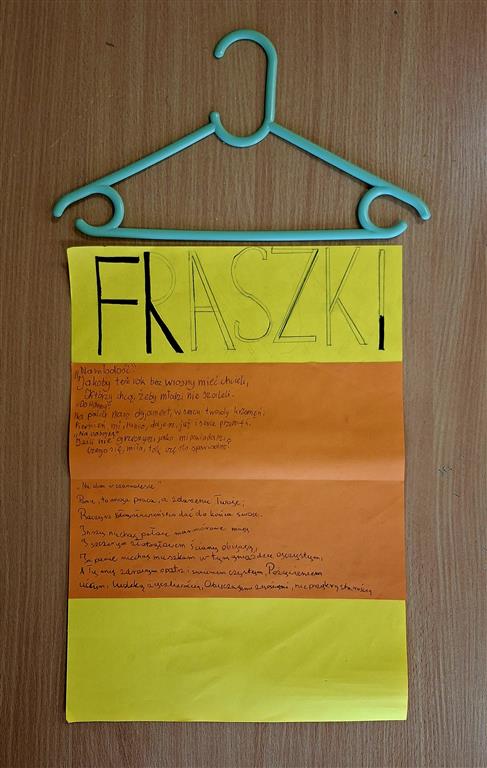 FRASZKI
"Na młodość"
Jakoby też rok bez wiosny mieć chcieli,
Którzy chcą, żeby młodzi nie szaleli.
"Do Hanny"
Na palcu masz dyjament, w sercu twardy krzemień,
Pierścień mi, Hanno, dajesz, już i serce przemień.
"Na
Jeśli nie grzeszysz, jako mi powiadasz,
Czego się, miła, tak często spowiadasz?
"Na dom w Czarnolesie"
Panie, to moja praca, a zdarzenie Twoje;
Raczyż błogosławieństwo dać do końca swoje.
Inszy niechaj pałace marmurowe mają
I szczerym złotogłowiem ściany obijają,
Ja, panie, niechaj mieszkam w tym gniaździe ojczystym,
A Ty mię zdrowiem opatrz i sumieniem czystym, Pożywieniem
ućciwym, ludzką życzliwością, Obyczajmi znośnymi, nieprzykrą starością.